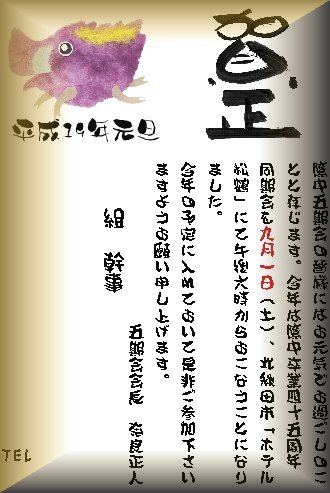 賀正
平成19年元旦
中五期会の皆様にはお元気でお過ごしのこ
とと存じます。今年は中卒業四十五周年
同期会を九月一日（土）、北秋田市「ホテル
松鶴」にて午後六時からおこなうことになり
ました。
今年の予定に入れておいて是非ご参加下さい
ますようお願い申し上げます。
五期会会長 奈良正人
組 幹事
TEL